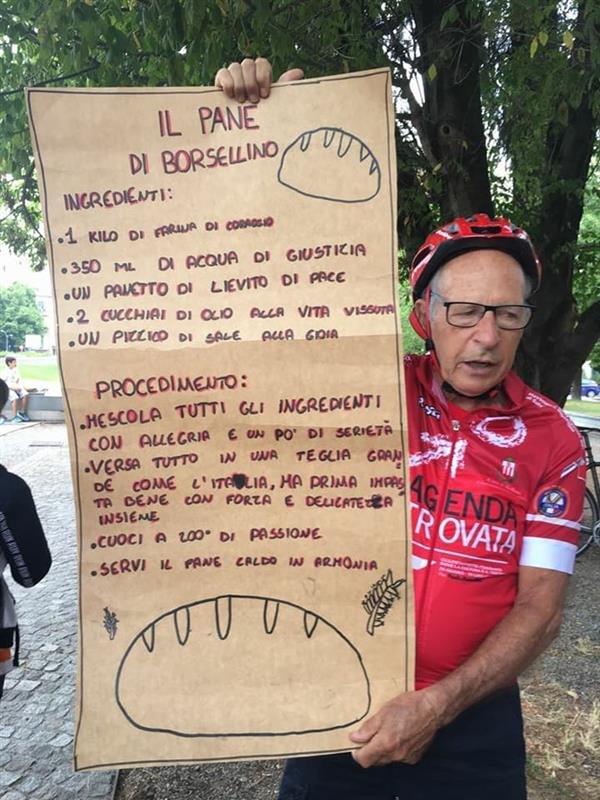 IL PANE
DI BORSELLINO
INGREDIENTI:
•1 KILO DI FARINA DI CORAGGIO
•350 ML DI ACQUA DI GIUSTIZIA
•UN PANETTO DI LIEVITO DI PACE
•2 CUCCHIAI DI OLIO ALLA VITA VISSUTA
•UN PIZZICO DI SALE ALLA GIOIA
PROCEDIMENTO:
•MESCOLA TUTTI GLI INGREDIENTI
CON ALLEGRIA E UN PO' DI SERIETÀ
•VERSA TUTTO IN UNA TEGLIA GRAN
DE COME L'ITALIA, MA PRIMA IMPAS
TA BENE CON FORZA E DELICATEZZA
INSIEME
•CUOCI A 200° DI PASSIONE
•SERVI IL PANE CALDO IN ARMONIA
AGENDA
RITROVATA